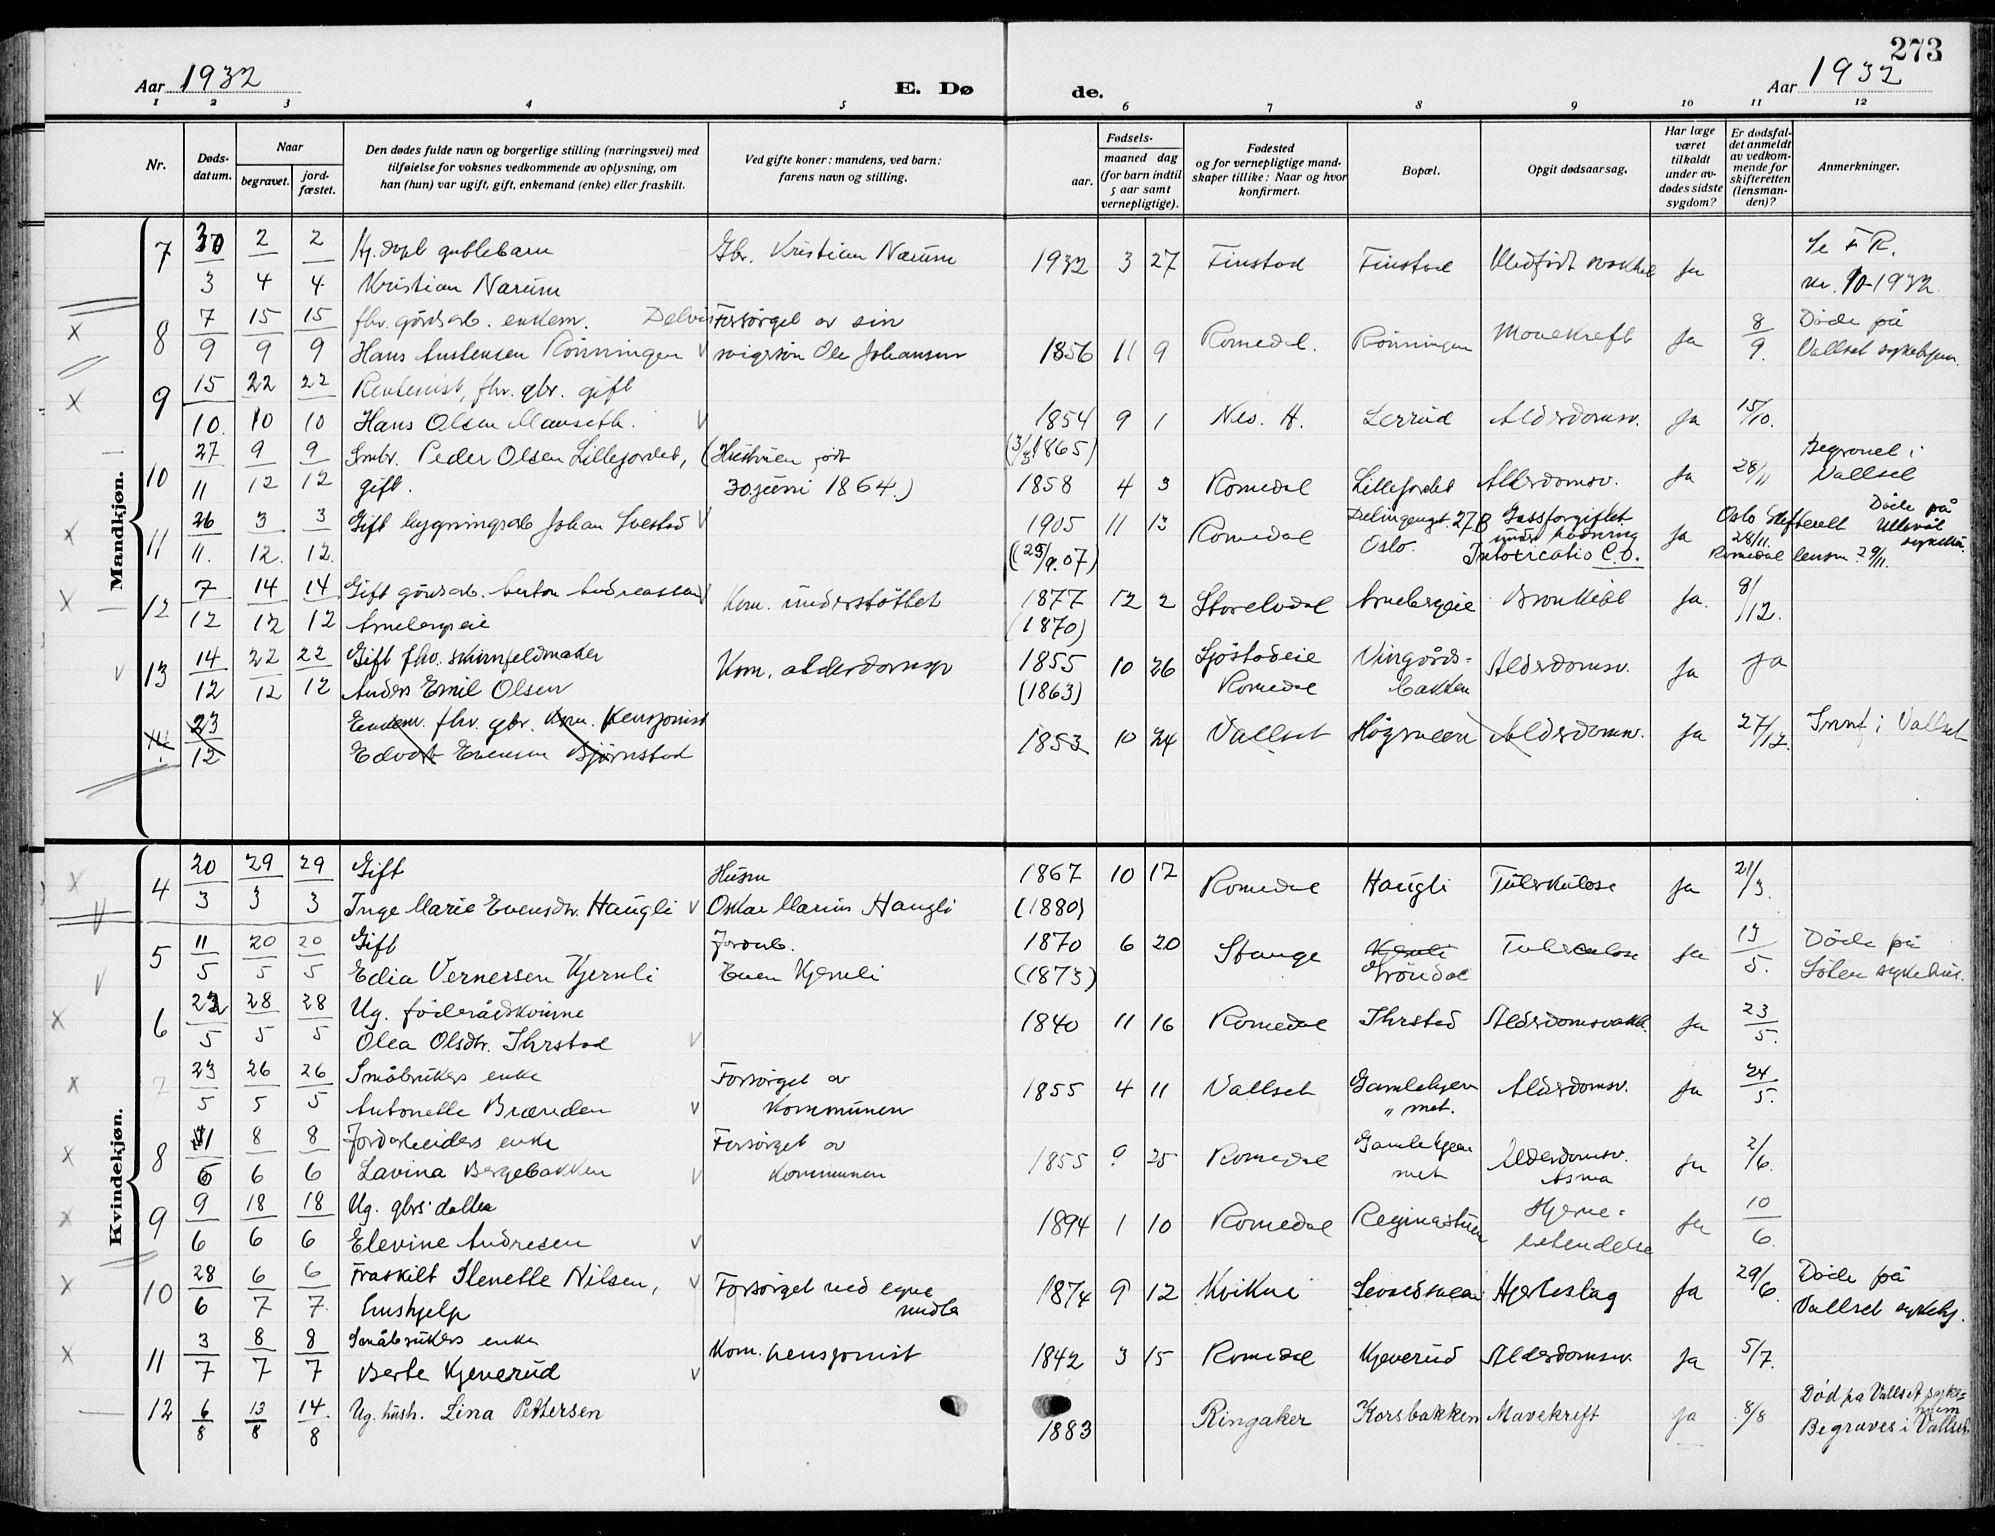 273
Aar 1932
E. Dø
de.
Aar 1932
1 2 3 4 5 6 7 8 9 10 11 12
Nr.
Døds-
datum.
Naar
begravet.
jord-
fæstet.
Den dødes fulde navn og borgerlige stilling (næringsvei) med
tilføielse for voksnes vedkommende av oplysning, om
han (hun) var ugift, gift, enkemand (enke) eller fraskilt.
Ved gifte koner: mandens, ved barn:
farens navn og stilling.
Fødsels-
aar.
maaned dag
(for barn indtil
5 aar samt
vernepligtige).
Fødested
og for vernepligtige mand-
skaper tillike: Naar og hvor
konfirmert.
Bopæl.
Opgit dødsaarsag.
Har læge
været
tilkaldt
under av-
dødes sidste
sygdom?
Er dødsfal-
det anmeldt
av vedkom-
mende for
skifteretten
(lensman-
den)?
Anmerkninger.
Mandkjøn.
7 30 2 2 Hj.døpt guttebarn Gbr. Kristian Nærum 1932 3 27 Finstad Finstad Medfødt Ja Se F R.
3 4 4 Kristian Nærum nr. 10-1932.
8 7 15 15 fhv. gårdsarb. enkem. Delvis Forsörget av sin Romedal. Rönningen Mavekreft Ja 8 Döde på
9 9 9 Hans Austensen Rönningen svigersön Ole Johansen 1856 11 9 9. Vallset sykehjem.
9 15 22 22 Rentenist, fhv. gbr. gift
10. 10 10 Hans Olsen Manseth. 1854 9 1 Nes. H. Lerrud Alderdomsv. Ja 15/10.
10 27 9 9 Smbr. Peder Olsen Lillejordet, (Hustruen født (3/3 1865) Begravet i
11 12 12 gift. 30 juni 1864.) 1858 4 3 Romedal Lillejordet Alderdomsv. Ja 28/11 Vallset
11 26 3 3 Gift bygningsarb Johan 1905 11 13 Romedal 27 B Gassforgiftet Ja Oslo Skifterett Döde på
11. 12. 12. (25/9.07) Oslo. under 28/11. Ullevål
Intoxicatio C.O. Romedal lensm. 29/11. sykehus.
12 7 14 14 Gift gårdsarb. Anton Andreassen Kom. understöttet 1877 12 2 Storelvdal Arnebergeie Bronkitt Ja. 9/12.
12 12 12 Arnebergeie (1870)
13 14 22 22 Gift fhv. skinnfeldmaker Kom. alderdomsp 1855 10 26 Sjöstadeie Vingårds- Alderdomsv. Ja Ja
12 12 12 Anders Emil Olsen (1863) Romedal bakken
14 23 Enkem. fhv. gbr. Kom. Pensjonist
12 Edvart Evensen Bjørnstad 1853 10 24 Vallset Alderdomsv. Ja 27/12. Innf i Vallset
Kvindekjøn.
4 20 29 29 Gift Husm 1867 10 12 Romedal Haugli Tuberkulose Ja 21/3.
3 3 3 Inge Marie Evensdtr. Haugli Oskar Marius Haugli (1880)
5 11 20 20 Gift Jordarb. 1870 6 20 Stange Kjernli Tuberculose Ja 13 Döde på
5 5 5 Edia Vernersen Kjernli Even Kjernli (1873) Gröndal 5. sykehus.
6 22 28 28 Ug. föderådskvinne
5 5 5 Olea Olsdtr. Ihrstad 1840 11 16 Romedal Ihrstad Alderdomsvakk. Ja 23 5.
7 23 26 26 Småbrukers enke Forsörget av 1855 4 11 Vallset Gamlehjem Alderdomsv. Ja 24
5 5 5 Antonette Brænden Kommunen „ met. 5.
8 31 8 8 Jordarbeiders enke Forsörget av Gamlehjem
5 6 6 Lavina Bergebakken Kommunen 1855 9 25 Romedal met Alderdomsv. Ja 2/6.
Asma
9 9 18 18 Ug. gbrs. datter 1894 1 10 Romedal Reginastuen Hjerne- Ja 10
6 6 6 Elevine Andresen betendelse 6.
10 28 6 6 Fraskilt Nilsen, Forsörget ved egne 1874 9 12 Kvikne Hjerteslag Ja 29/6 Döde på
6 7 7 hushjelp midler Vallset sykehj.
11 3 8 8 Småbrukers enke Kom. pensjonist 1842 3 15 Romedal Kjeverud Alderdomsv. Ja 5/7.
7 7 7 Berte Kjeverud
12 6 13 14. Ug. hush. Lina Pettersen 1883 Ringsaker Korsbakken Mavekreft Ja 8/8 Død på Vallset syke-
8 8 8 hjem
Begraves i Vallset